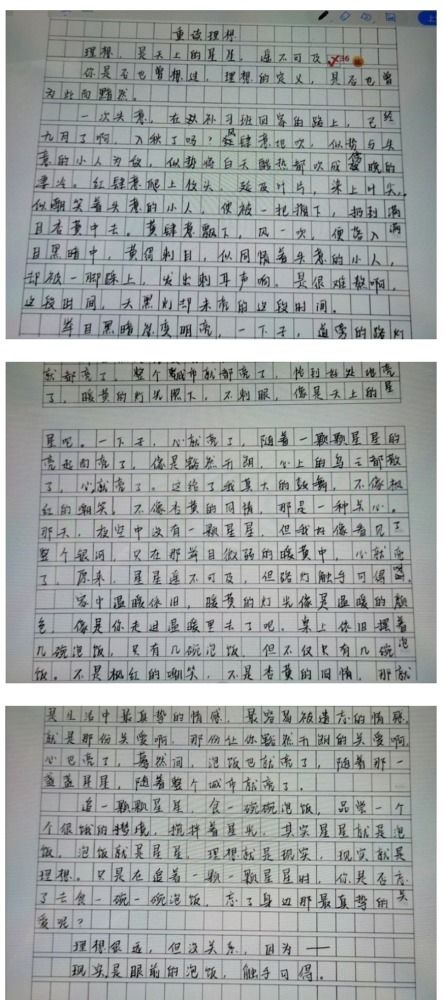 重读理想
理想，是天上的星星，遥不可及。
你是否也曾想过，理想的定义，是否也曾
为此而黯然。
一次失意，在从补习班回家的路上，已经
九月了啊，入秋了吗？风肆意地吹，似势与失
意的小人为敌，似势将白天酷热都吹成夜晚的
凄冷。红肆意爬上枝头，染上叶尖，
似嘲笑着失意的小人，便被一把拽下，扔到满
目杏黄中去。黄肆意飘下，风一吹，便落入满
目黑暗中，黄得刺目，似同情着失意的小人，
却被一脚踩上，发出刺耳声响。是很难熬啊，
这段时间，天黑灯却未亮的这段时间。
举目黑暗忽变明亮，一下子，道旁的路灯
就都亮了，整个城市就都亮了，恰到好处地亮
了，暖黄的灯光照下，不刺眼，像是天上的星
星吧。一下子，心就亮了，随着一颗颗星星的
亮起而亮了，像是豁然开朗，心上的乌云都散
了，心就亮了。这给了我莫大的鼓舞，不像枫
红的嘲笑，不像杏黄的同情，那是一种关心。
那天，夜空中没有一颗星星，但我好像看见了
整个银河，只在那举目微弱的暖黄中，心就亮
了，原来，星星遥不可及，但路灯触手可得。
家中温暖依旧，暖黄的灯光像是温暖的颜
色，像是你走进温暖里去了吧。桌上依旧摆着
几碗泡饭，只有几碗泡饭，但不仅只有几碗泡
饭。不是枫红的嘲笑，不是杏黄的同情，那就
是生活中最真挚的情感，最容易被遗忘的情感，
就是那份关爱啊，那份让你豁然开朗的关爱啊，
心也亮了，蓦然间，泡饭也就亮了，随着那一
盏盏星星，随着整个城市就亮了。
追一颗颗星星，食一碗碗泡饭，品尝一个
个很饿的梦境，搅拌着星光，其实星星就是泡
饭，泡饭就是星星，理想就是现实，现实就是
理想。只是在追着一颗一颗星星时，你是否忘
了去食一碗一碗泡饭，忘了身边那最真挚的关
爱呢？
理想很远，但没关系，因为——
现实是眼前的泡饭，触手可得。